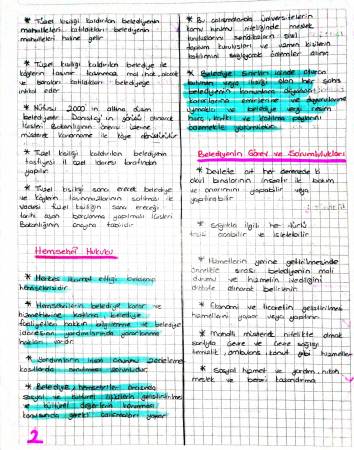 * Tüzel kişiliği kaldırılan belediyenin
mahalleleri katıldıkları belediyenin
mahalleleri haline gelir
* Tüzel kişiliği kaldırılan belediye ile
köylerin taşınır taşınmaz mal, hak, alacak
ve borçları katıldıkları belediyeye
intikal eder
* Nüfusu 2000'in altına düşen
belediyeler Danıştay'ın görüşü alınarak
İçişleri Bakanlığının önerisi üzerine
müşterek kararname ile köye dönüştürülür
* Tüzel kişiliği kaldırılan belediyenin
tasfiyesi il özel idaresi tarafından
yapılır
* Tüzel kişiliği sona erecek belediye
ve köylerin taşınmazlarının satılması ile
vadesi tüzel kişiliğin sona ereceği
tarihi aşan borçlanma yapılması İçişleri
Bakanlığının onayına tabidir
Hemşehri Hukuku
* Herkes ikamet ettiği beldenin
hemşehrisidir
* Hemşehrilerin belediye karar ve
hizmetlerine katılma, belediye
faaliyetleri hakkında bilgilenme ve belediye
idaresinin yardımlarından yararlanma
hakları vardır
* Yardımların insan onurunu zedelemeyecek
koşullarda sunulması zorunludur
* Belediye, hemşehriler arasında
sosyal ve kültürel ilişkilerin geliştirilmesi
ve kültürel değerlerin korunması
konusunda gerekli çalışmaları yapar
2
* Bu çalışmalarda üniversitelerin
kamu kurumu niteliğinde meslek
kuruluşlarının sendikaların sivil
toplum kuruluşları ve uzman kişilerin
katılımını sağlayacak önlemler alınır
* Belediye sınırları içinde oturan
bulunan veya ilişiği olan her şahıs
belediyenin kanunlara dayanan
kararlarına emirlerine ve duyurularına
uymakla ve belediye vergi resim
harç, katkı ve katılma paylarını
ödemekle yükümlüdür
Belediyenin Görev ve Sorumlulukları
* Devlete ait her derecede ki
okul binalarının inşaatı ile bakım
ve onarımını yapabilir veya
yaptırabilir
* Sağlıkla ilgili her türlü
tesis açabilir ve işletebilir
* Hizmetlerin yerine getirilmesinde
öncelik sırası belediyenin mali
durumu ve hizmetin ivediliği
dikkate alınarak belirlenir
* Ekonomi ve ticaretin geliştirilmesi
hizmetlerini yapar veya yaptırır
* Mahalli müşterek nitelikte olmak
şartıyla çevre ve çevre sağlığı
temizlik, ambulans, kent gibi hizmetler
* Sosyal hizmet ve yardım, nikah,
meslek ve beceri kazandırma